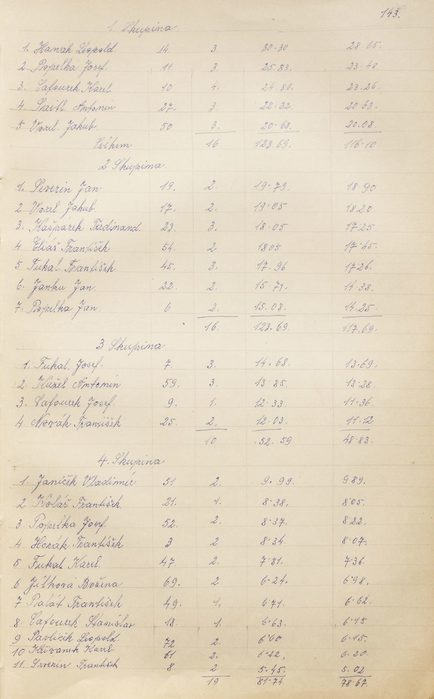 143.
1. Skupina
1. Hanák Leopold 14 3 30·30 28 05.
2 Popelka Josef 11 3 25.83. 23·40
3. Cafourek Karel 10 4. 24 80. 23·26
4. 27. 3 22·32 20 63.
5 Vozil Jakub 50 3. 20·68. 20.08.
16 123.69. 116·10
2 Skupina
1. Severin Jan 19. 2. 19·79. 18 90
2 Vozil Jakub 17. 2. 19·05 18 20
3. Kašparek Ferdinand 23. 3. 18·05 17·25
4 Eliáš František 54. 2 18 05 17·45.
5 Fukal František 45. 3. 17·96 17·26.
6. Janků Jan 22 2. 15 71.
7. Popelka Jan 6 2 15.08. 14·25
16. 123.69 117.69.
3 Skupina
1. Fukal Josef 7 3. 14.68. 13·69.
2. Antonín 59. 3. 13 28
3. Cafourek Josef 9. 1. 12·33 11·36.
4 Novák František 25. 2. 12·03 11·12
10 52 59 48·83.
4. Skupina
1. Janíček Vladimír 51 2. 9·99 9 89.
2 Kolář František 21. 1. 8·38. 8 05.
3. Popelka Josef 52. 2. 8·37. 8 22.
4 Horák František 3 2 8·34 8·07.
5 Fukal Karel 47 2. 7·81. 7 36.
6 Božena 69. 2
7 Palát František 49. 1. 6·71. 6·62.
8. Cafourek Stanislav 18 1. 6·63. 6·45
9 Pavlíček Leopold 72 2 6·60 6·45.
10 Karel 61 2. 6·20
11. Severin František 8 2 5·45. 5·02
19 81·74 78·67